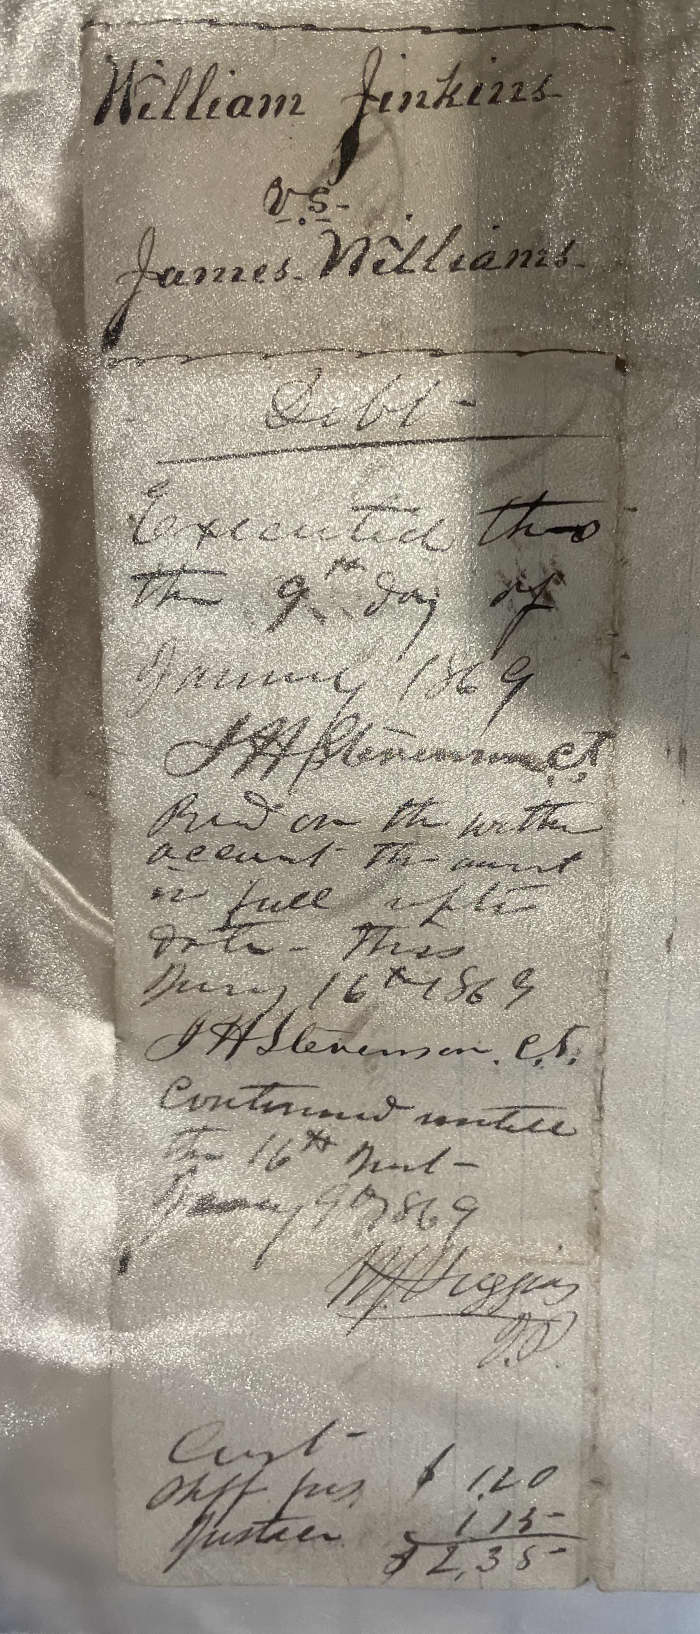 William Jinkins
vs.
James Williams
Debt-
Executed this
the 9th day of
January 1869
J H Stevenson C.T.
Recd on the within
account the amt
in full upto
date - this
16th 1869
J H Stevenson. C.T.
Continued untill
the 16th Inst-
9th 1869
Higgins
J.P.
Cost-
fees $ 1,20
Justice 1 15-
$ 2,35-